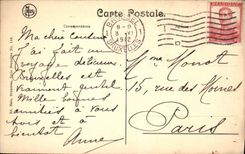 Carte Postale.
Correspondance
Ma chère Cousine
J'ai fait un
voyage délicieux.
Bruxelles est
vraiment gentil.
Mille bonnes
amitiés à vous
tous et à
bientôt
Anne
1912
BRUXELLES
15, rue des Moines
Paris